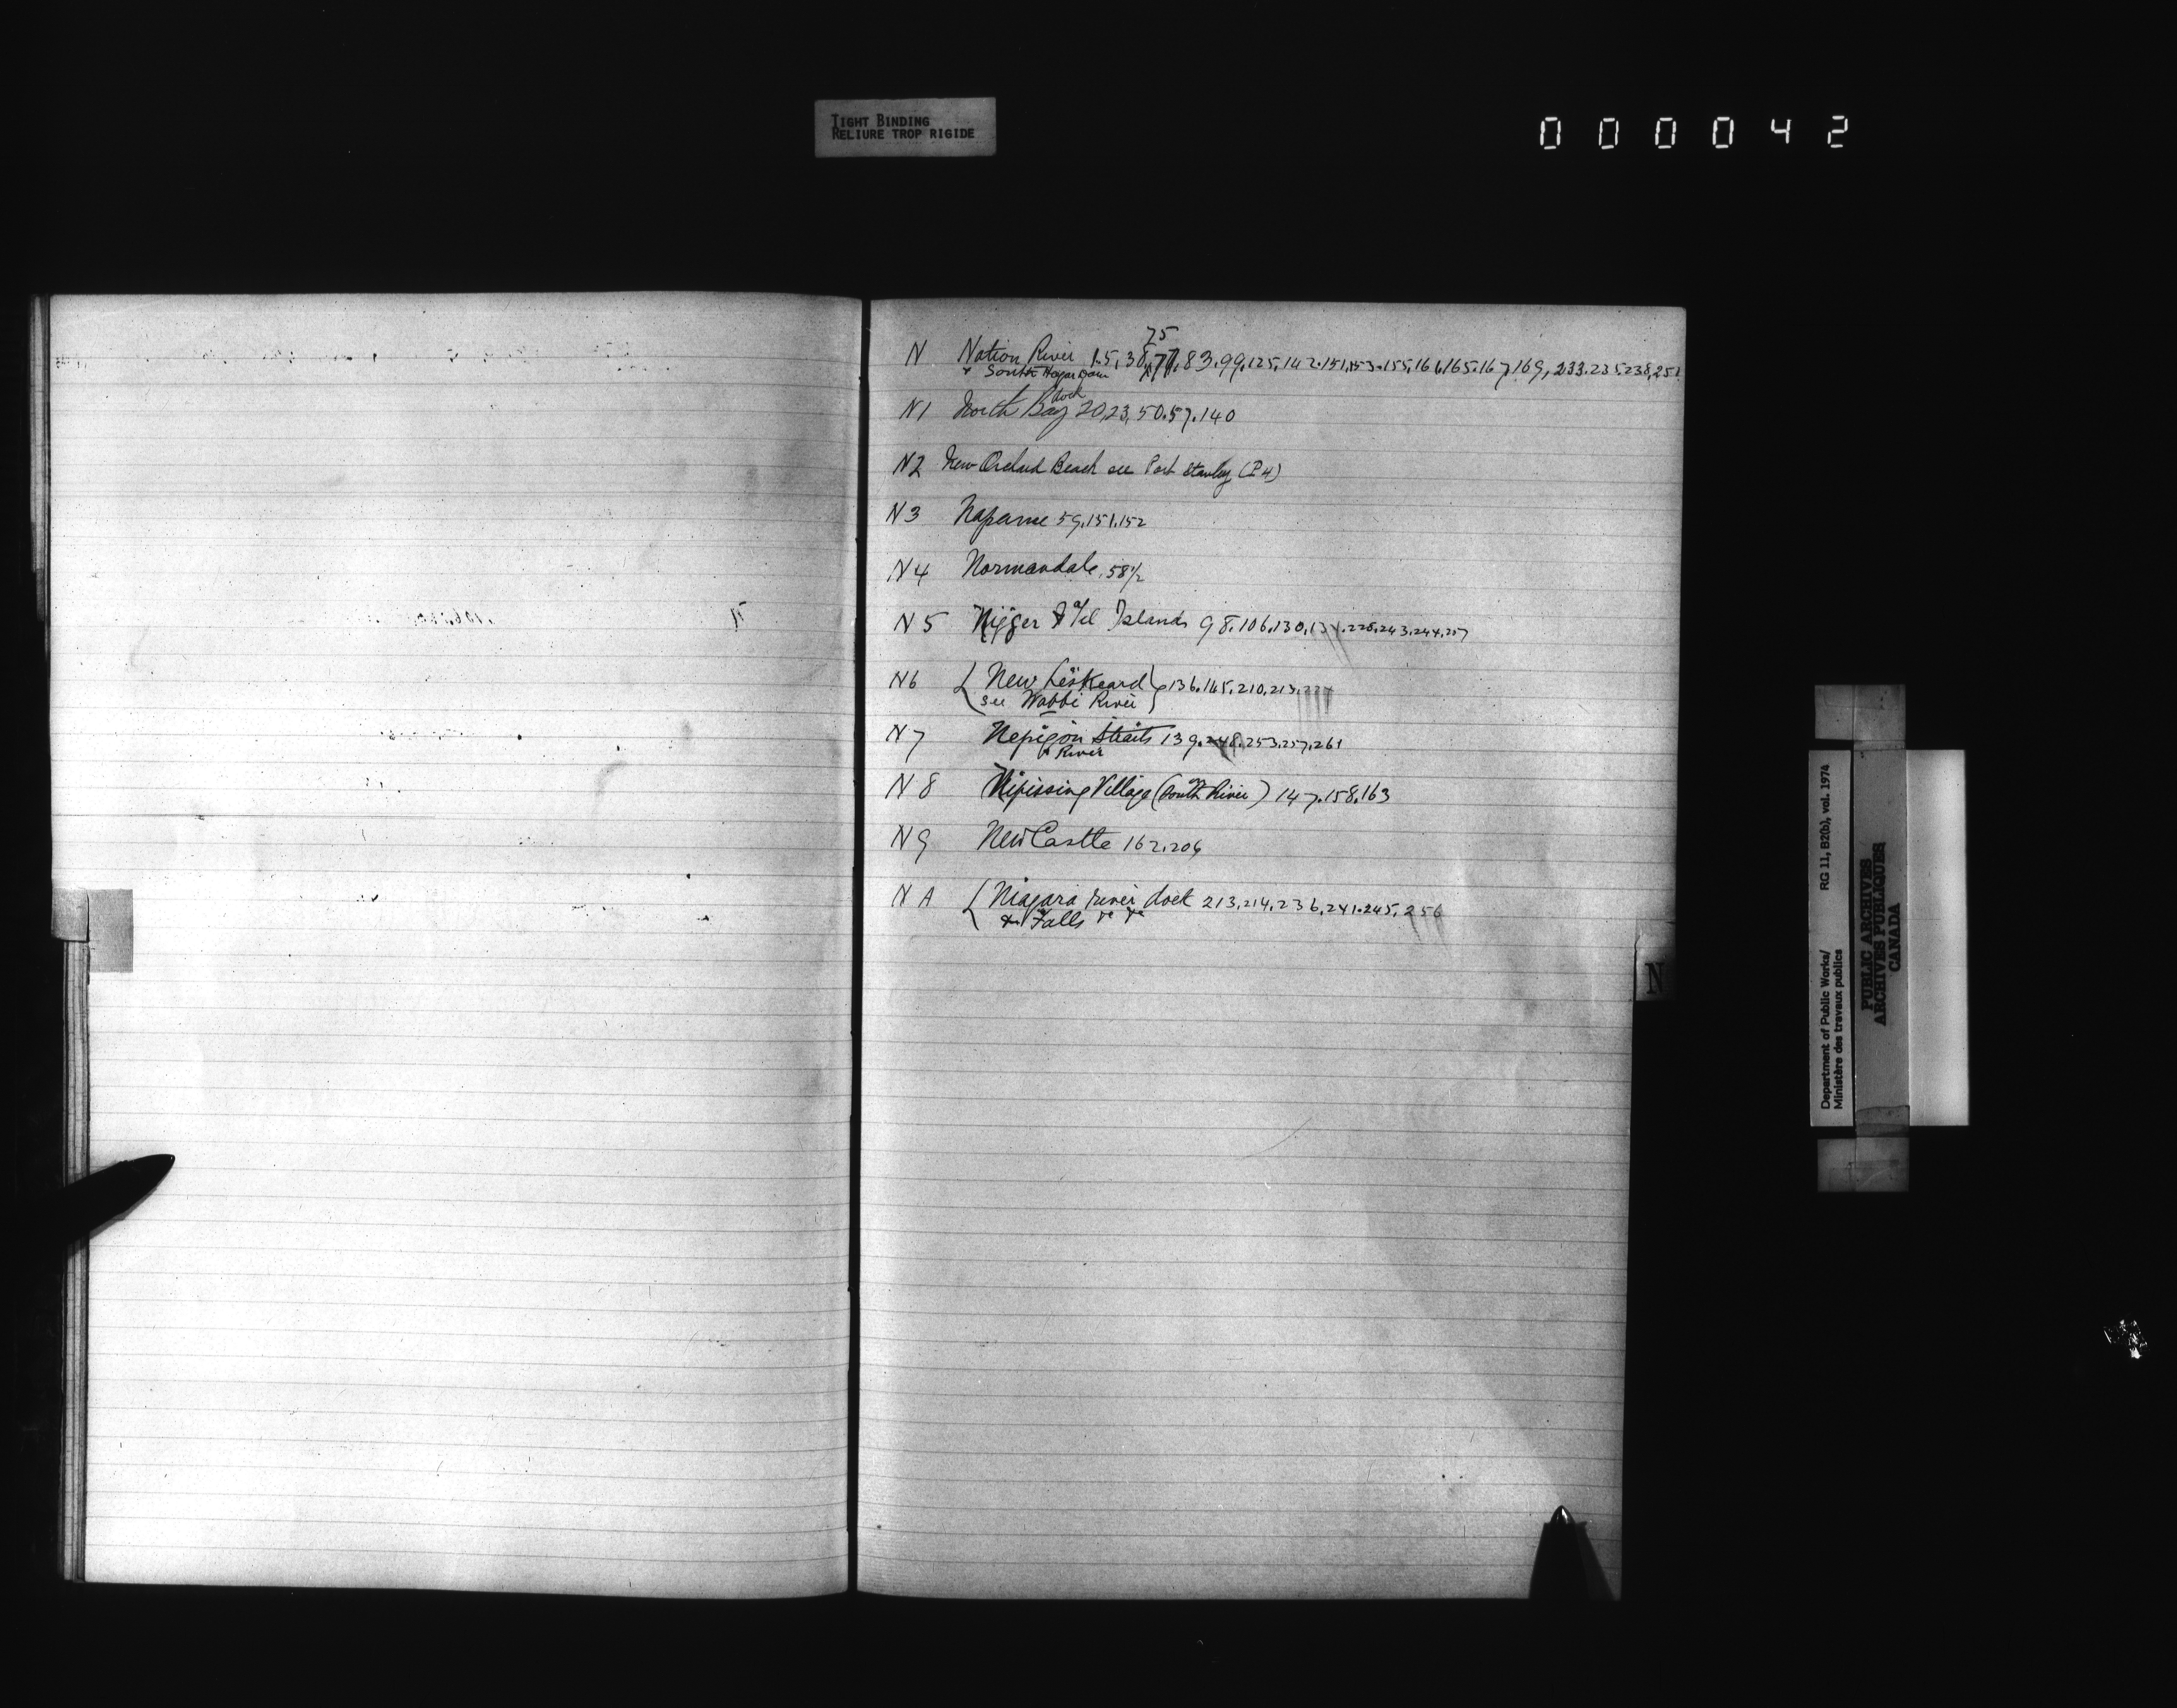 TIGHT BINDING
RELIURE TROP RIGIDE
000042
75
N Nation River 1.5,38,77,83.99,125,142.151,153.155,161,165.167,169,233.235,238,251
& South Hagar Dam
dock
N1 North Bay 20,23,50.57.140
N2 New Orchard Beach see Port Stanley (P4)
N3 Napanee 59.151.152
N4 Normandale, 58½
N5 Nigger & Islands 98.106,130,131.228,243,244,257
N6 { New Liskeard } 136.165,210,213,227
see Wabbi River
N7 Nepigon Straits 139.248.253.257,261
& River
N8 Nipissing Village (South River) 147.158,163
N9 NewCastle 162,206
NA { Niagara river dock 213,214,236,241.245,256
Falls
N
Department of Public Works/
Ministère des travaux publics
RG 11, B2(b), vol. 1974
PUBLIC ARCHIVES
ARCHIVES PUBLIQUES
CANADA